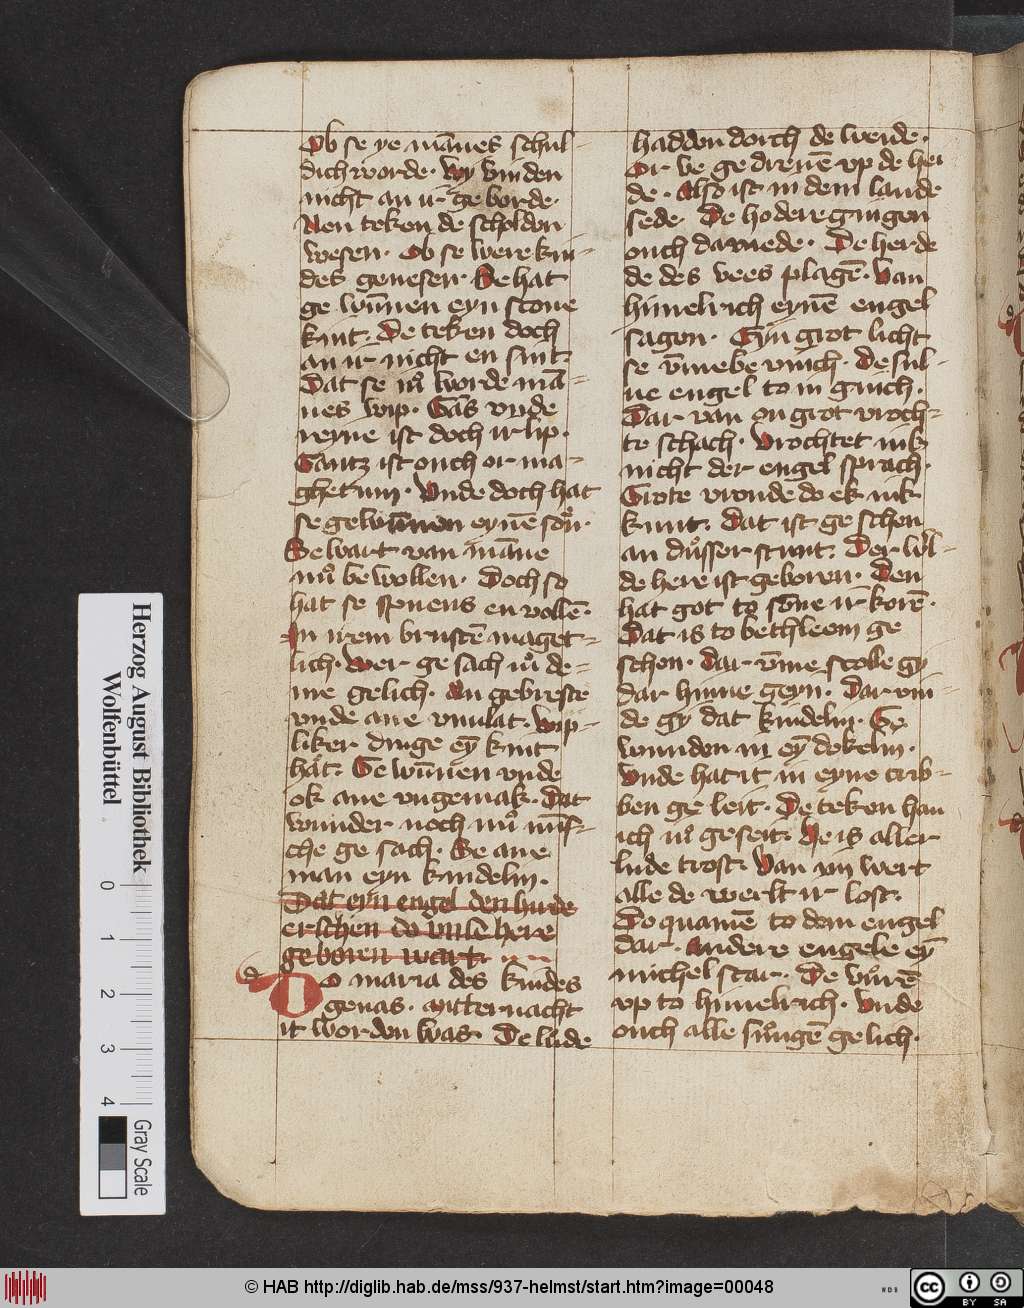 Ob se ye ma̅nes schul-
dich worde. Wy vunden
nicht an ir ge borde.
Nen teken de scholdon
wesen. Ob se were kin-
des genesen. De hat
ge wu̅nen eyn scone
kint. De teken doch
an ir nicht en sint.
Dat se nu worde ma̅-
nes wip. Gās vnde
reyne ist doch ir lip.
Gantz ist ouch or ma-
ghetum. Vnde doch hat
se gewūnnen eyne̅ son.
Se wart van ma̅ne
nu be wollen. Doch so
hat se spuens en volle̅.
In irem bruste̅ maget-
lich. Wer ge sach iu de-
me gelich. An gebreste
vnde ane vnulat. Wip-
liker dinge ey̅ kint
hat. Ge wu̅nen vnde
ok ane vngemak. Dat
wunder noch nu me̅s-
che ge sach. Se ane
man eyn kindelin.
Dat eyn engel den hirde
erschen do vnse here
geboren wart
Do maria des kindes
genas. Mitternacht
it wordon was. De lude
haddon dorch de weide.
Or ve ge dreue̅ vp de hei
de. Also ist in dem lande
sede. De hodere gingen
ouch da mede. De herde
de des vees plage̅. Van
himelrich eyne̅ engel
sagen. Eyn grot licht
se v̅meve vinch. De sul-
ue engel to in ginch.
Dar van on grot vroch-
te schach. Vrochtet nik
nicht der engel sprach.
Grote vroude do ek nik
kunt. Dat ist ge schen
an dusser stunt. Der wel-
de here ist geboren. Den
hat got to so̅ne ir kore̅.
Dat is to bethleem ge
schen. Dar v̅me scolle gy
dar hinne geyn. Dar vin
de gy dat kindelin. Ge
wunden in ey̅ dokelin.
Vnde hat it in eyne crib-
ben ge leit. De teken han
ich iu geseit. He is aller
lude trost. Van im wert
alle de werlt ir lost.
Do quame̅ to dem engel
dar. Andere engele ey̅
michel scar. De vure̅
vp to himelrich. Vnde
ouch alle sunge̅ gelich.
Herzog August Bibliothek
Wolfenbüttel
0 1 2 3 4
Gray Scale
© HAB http://diglib.hab.de/mss/937-helmst/start.htm?image=00048
WDB
cc BY SA